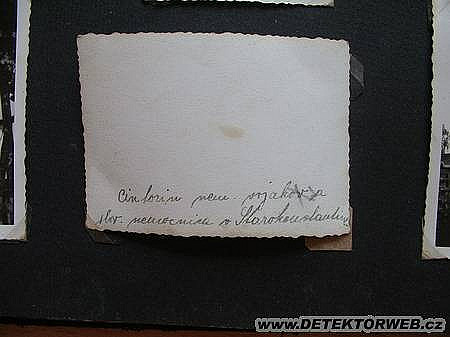 Cintorin nem. vojakov za
slov. nemocnicou v Starokonstantin
WWW.DETEKTORWEB.CZ